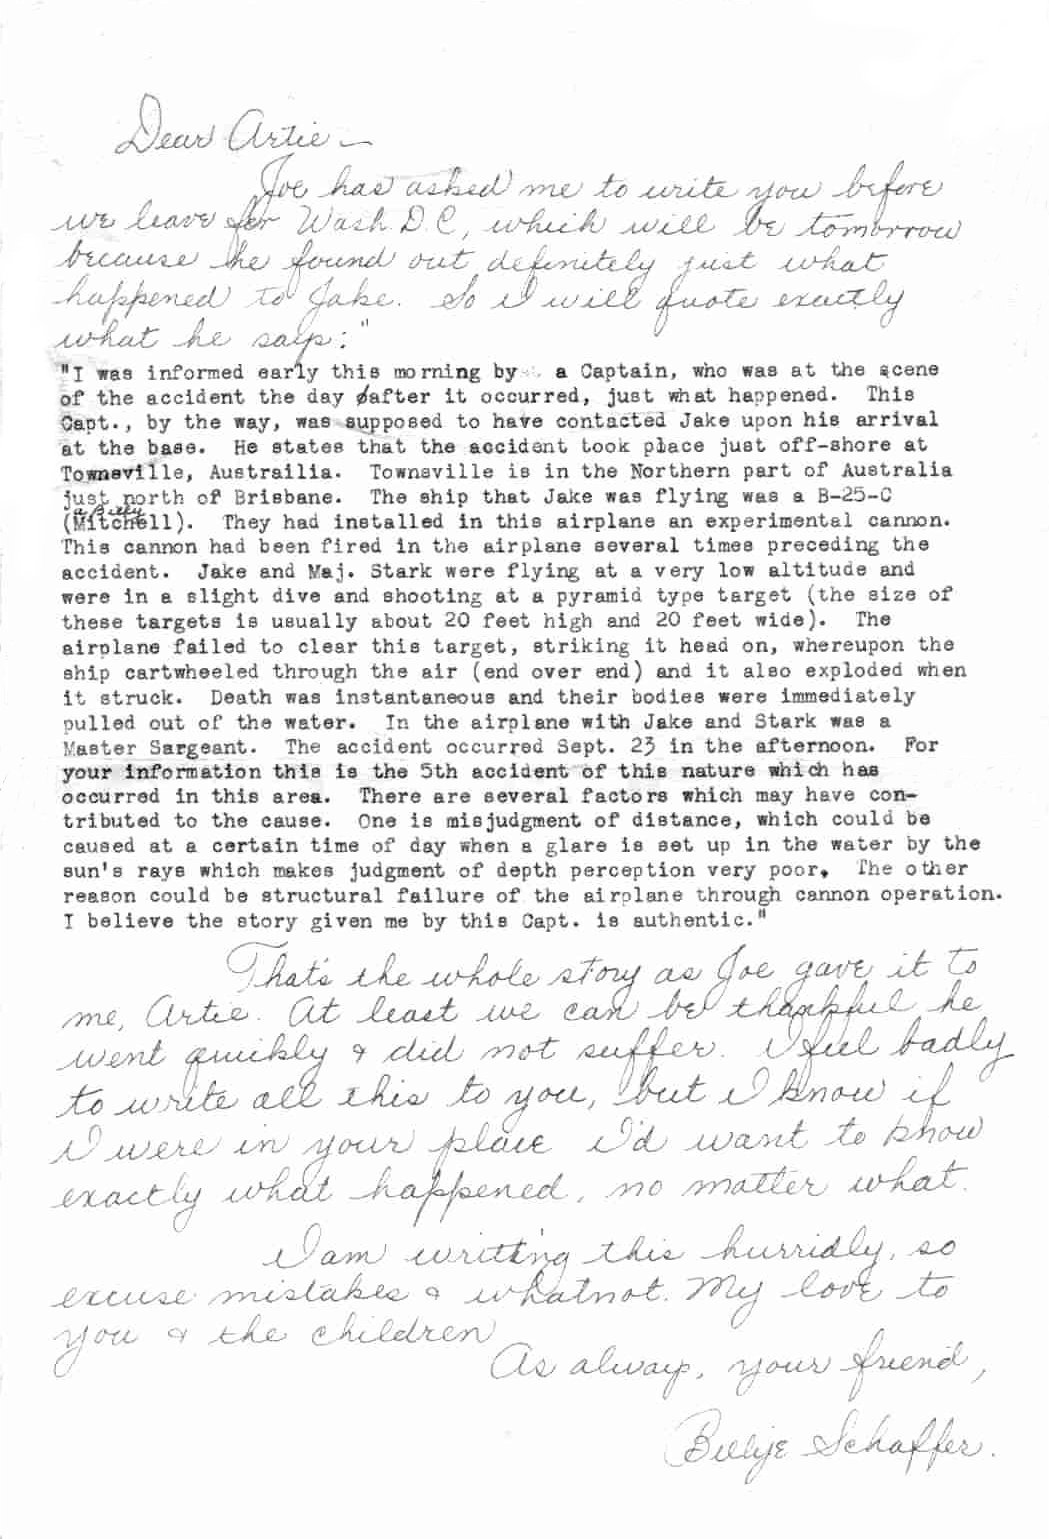 Dear Artie —
Joe has asked me to write you before
we leave for Wash. D.C, which will be tomorrow
because he found out definitely just what
happened to Jake. So I will quote exactly
what he says:"
"I was informed early this morning by a Captain, who was at the scene
of the accident the day after it occurred, just what happened. This
Capt., by the way, was supposed to have contacted Jake upon his arrival
at the base. He states that the accident took place just off-shore at
Townsville, Austrailia. Townsville is in the Northern part of Australia
just north of Brisbane. The ship that Jake was flying was a B-25-C
a Billy
(Mitchell). They had installed in this airplane an experimental cannon.
This cannon had been fired in the airplane several times preceding the
accident. Jake and Maj. Stark were flying at a very low altitude and
were in a slight dive and shooting at a pyramid type target (the size of
these targets is usually about 20 feet high and 20 feet wide). The
airplane failed to clear this target, striking it head on, whereupon the
ship cartwheeled through the air (end over end) and it also exploded when
it struck. Death was instantaneous and their bodies were immediately
pulled out of the water. In the airplane with Jake and Stark was a
Master Sargeant. The accident occurred Sept. 23 in the afternoon. For
your information this is the 5th accident of this nature which has
occurred in this area. There are several factors which may have con-
tributed to the cause. One is misjudgment of distance, which could be
caused at a certain time of day when a glare is set up in the water by the
sun's rays which makes judgment of depth perception very poor. The other
reason could be structural failure of the airplane through cannon operation.
I believe the story given me by this Capt. is authentic."
That's the whole story as Joe gave it to
me, Artie. At least we can be thankful he
went quickly & did not suffer. I feel badly
to write all this to you, but I know if
I were in your place I'd want to know
exactly what happened, no matter what.
I am writting this hurridly, so
excuse mistakes & whatnot. My love to
you & the children
As always, your friend,
Billye Schaffer.